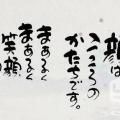 顔は
こころの
かたちです。
まあるく
まあるく
笑顔